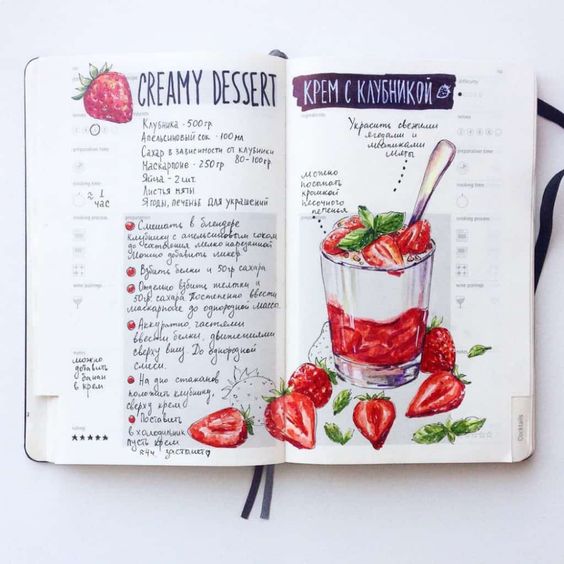 CREAMY DESSERT
Клубника - 500гр.
Апельсиновый сок - 100мл
Сахар в зависимости от клубники
80-100гр
Маскарпоне - 250гр
Яйца - 2шт.
Листья мяты
Ягоды, печенье для украшений
≈ 1
час
preparation
Смешать в блендере
клубнику с апельсиновым соком
до
Можно добавить ликер
Взбить белки и 50гр сахара
Отдельно взбить желтки и
50гр сахара. Постепенно ввести
маскарпоне до однородной массы.
Аккуратно, частями
ввести белки, движениями
сверху вниз. До однородной
смеси.
На дно стаканов
положить клубнику,
сверху крем
Поставить
в холодильник
пусть крем
застынет
notes
можно
добавить
банан
в крем
rating
КРЕМ С КЛУБНИКОЙ
Украсить свежими
ягодами и
листиками
мяты
можно
посыпать
крошкой
песочного
печенья
difficulty
preparation time
cooking time
cooking process
wine pairings
Cocktails